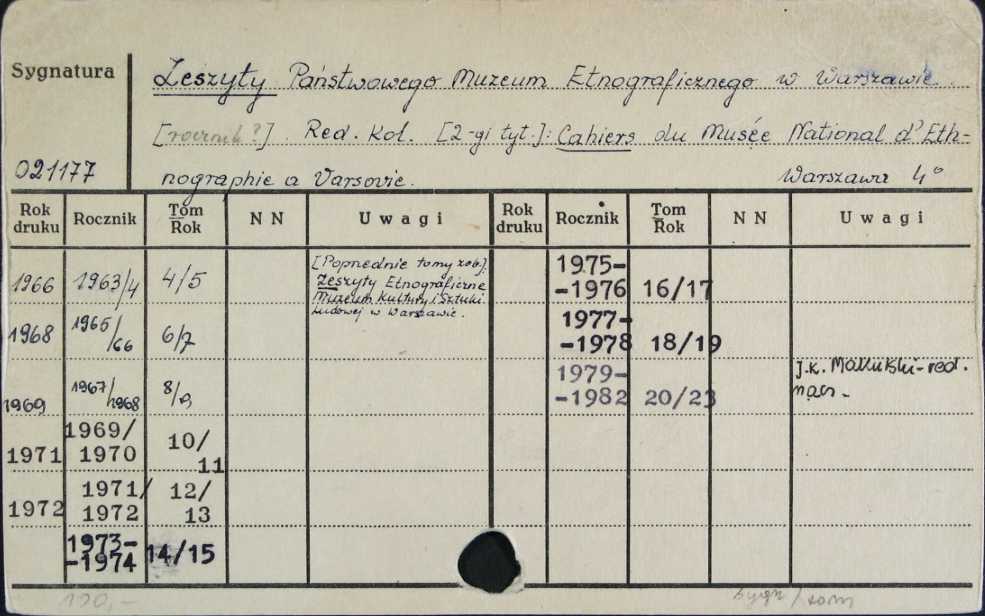 Sygnatura
Zeszyty Państwowego Muzeum Etnograficznego w Warszawie.
[rocznik?]. Red. Kol. [2-gi tyt.]: Cahiers du Musée National d'Eth-
021177
nographie a Varsovie. Warszawa 4°
Rok druku Rocznik Tom Rok N N Uwagi Rok druku Rocznik Tom Rok N N Uwagi
1966 1963/4 4/5
[Poprzednie tomy zob.]:
Zeszyty Etnograficzne
Muzeum Kultury i Sztuki
Ludowej w Warszawie.
1968 1965/66 6/7
1969 1967/1968 8/9
1971 1969/1970 10/11
1972 1971/1972 12/13
1973-
-1974 14/15
1975-
-1976 16/17
1977-
-1978 18/19
1979-
-1982 20/23
J.K. Makulski-red.
nacz.
120,-
sygn/tom